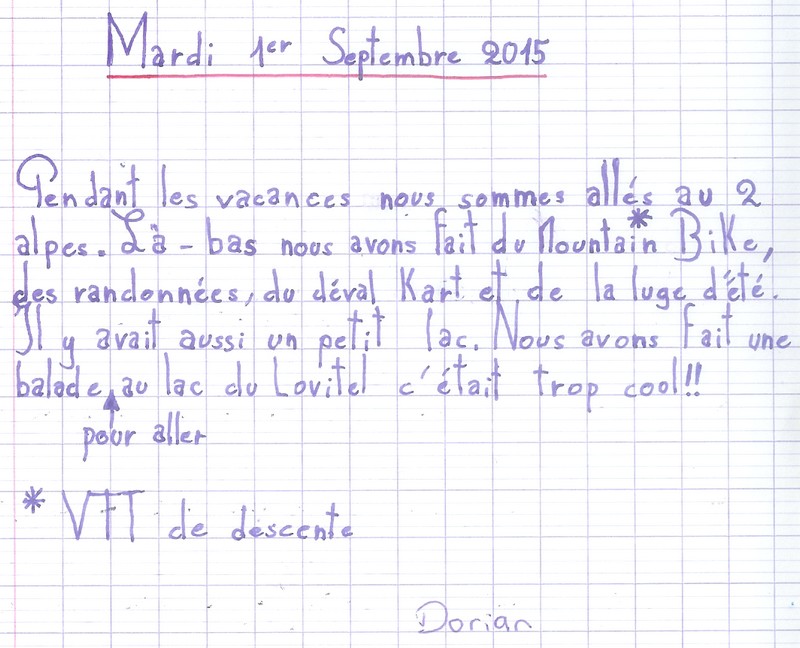 Mardi 1er Septembre 2015
Pendant les vacances nous sommes allés au 2
alpes. Là-bas nous avons fait du Mountain* Bike,
des randonnées, du déval Kart et de la luge d'été.
Il y avait aussi un petit lac. Nous avons fait une
balade au lac du Lovitel c'était trop cool!!
pour aller
* VTT de descente
Dorian